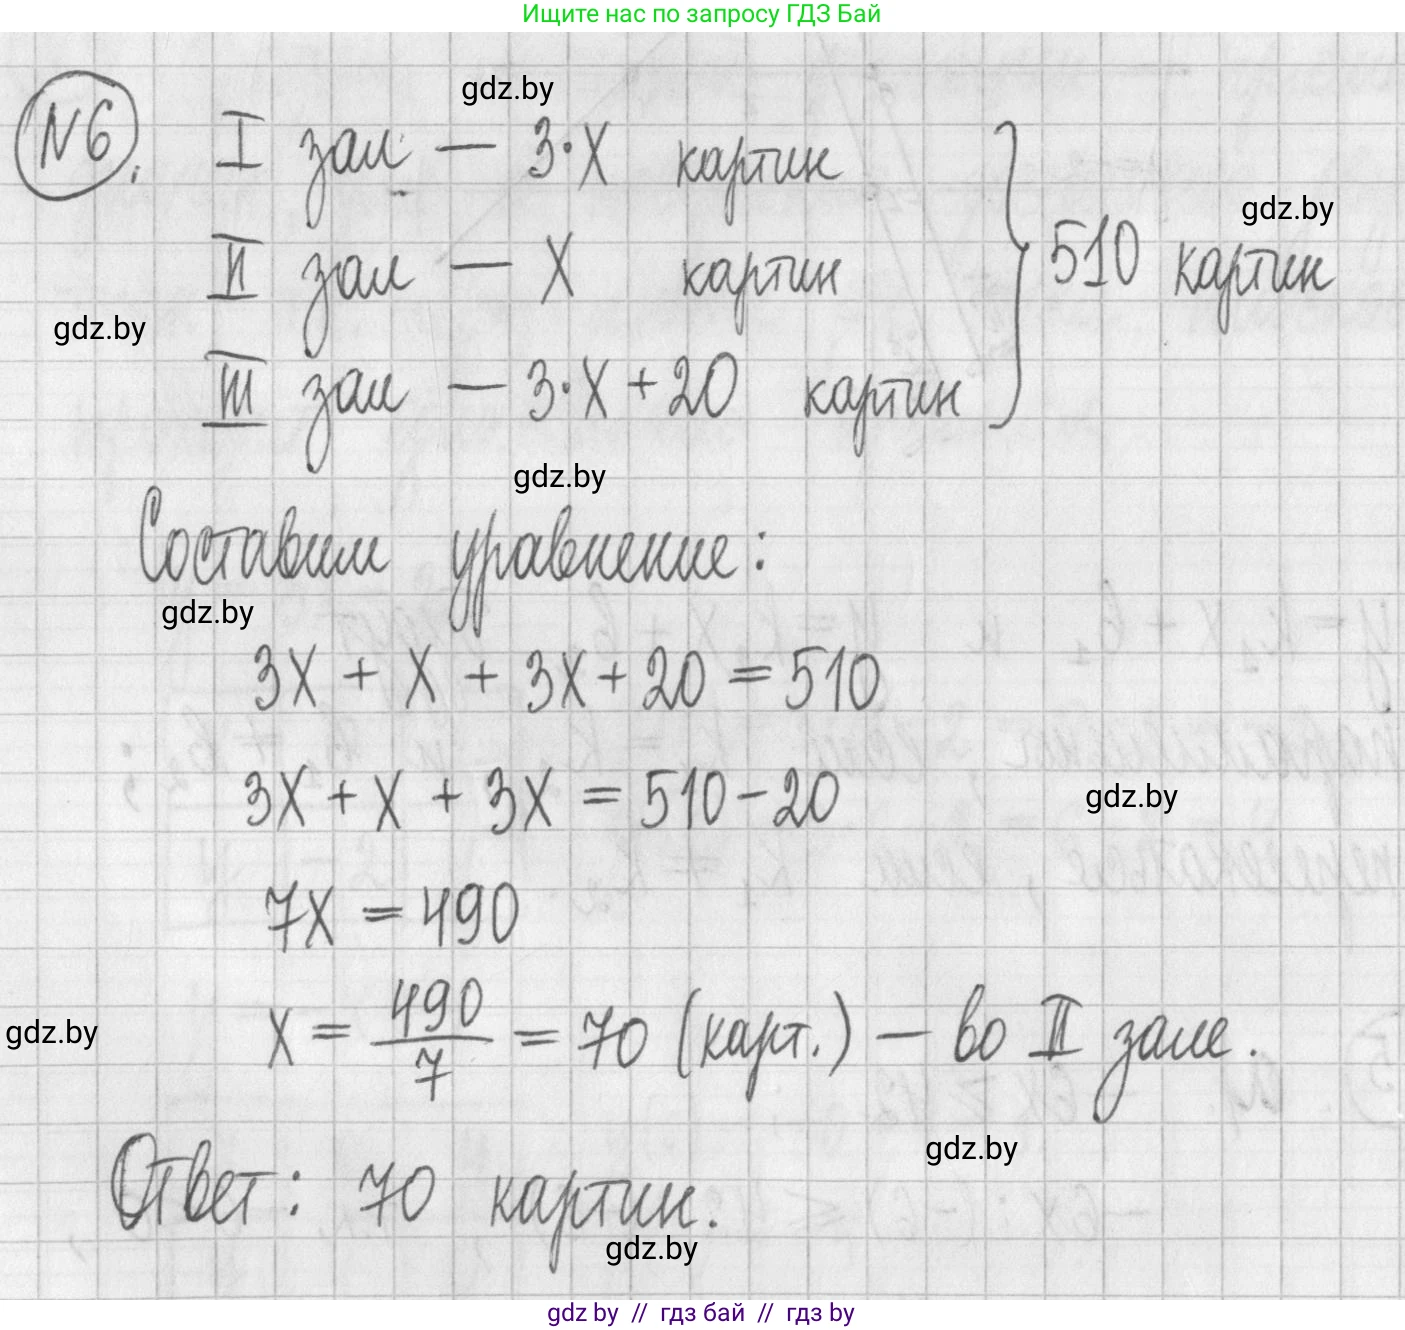 Ищите нас по запросу ГДЗ Бай
gdz.by
№6. I зал — 3·х картин
gdz.by
II зал — х картин
510 картин
gdz.by
III зал — 3·х + 20 картин
gdz.by
Составим уравнение:
gdz.by
3х + х + 3х + 20 = 510
3х + х + 3х = 510 - 20
gdz.by
7х = 490
х = 490/7 = 70 (карт.) — во II зале.
gdz.by
gdz.by
Ответ: 70 картин.
gdz.by
gdz by // гдз бай // гдз by